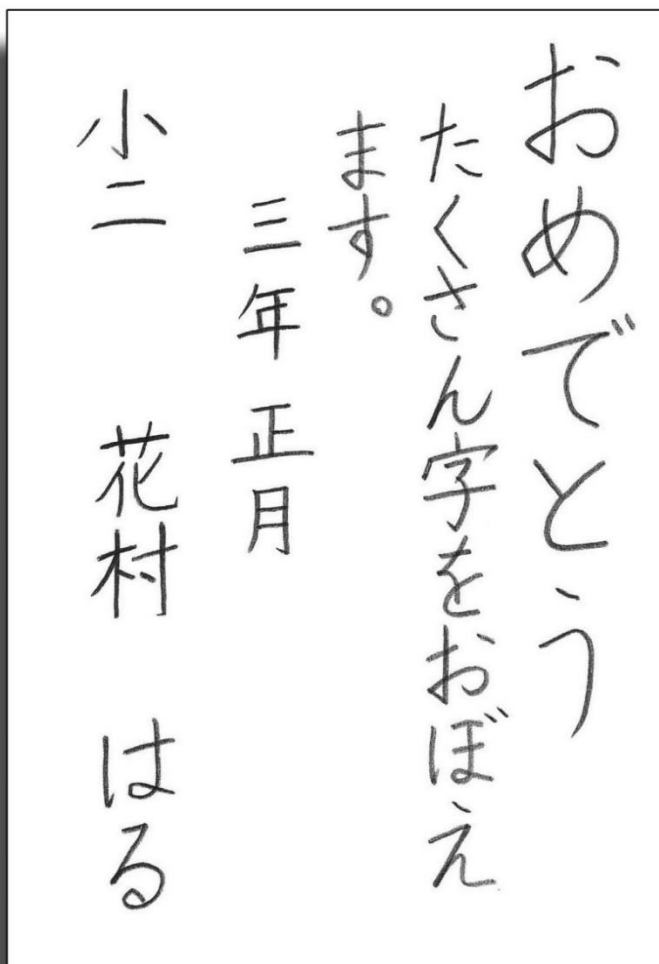 おめでとう
たくさん字をおぼえ
ます。
三年 正月
小二 花村 はる